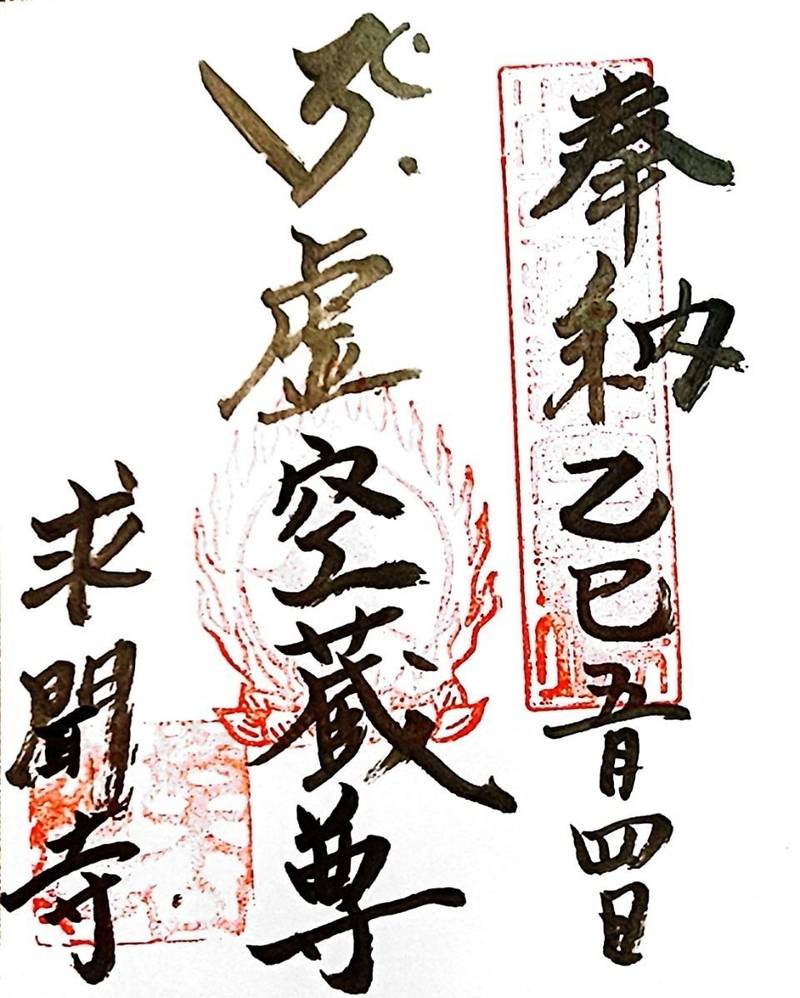 奉納 乙巳五月四日
虚空蔵尊
求聞寺